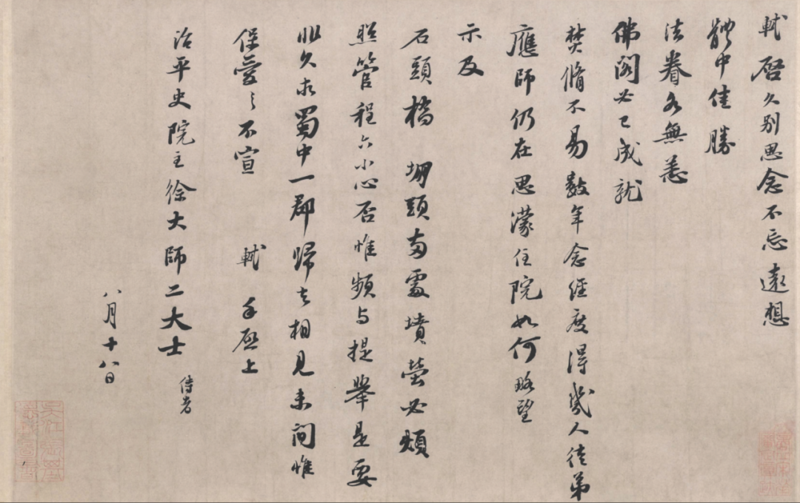 軾啓久別思念不忘遠想
體中佳勝
法眷各無恙
佛閣必已成就
焚脩不易數年念經度得幾人徒弟
應師仍在思濛住院如何略望
示及
石頭橋堋頭兩處墳塋必煩
照管程六小心否惟頻與提舉是要
非久求蜀中一郡歸去相見未間惟
保愛之不宣　軾　手啓上
治平史院主徐大師二大士侍者
八月十八日